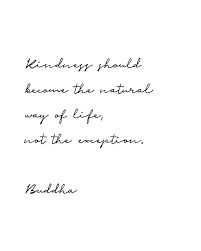 Kindness should
become the natural
way of life,
not the exception.
Buddha